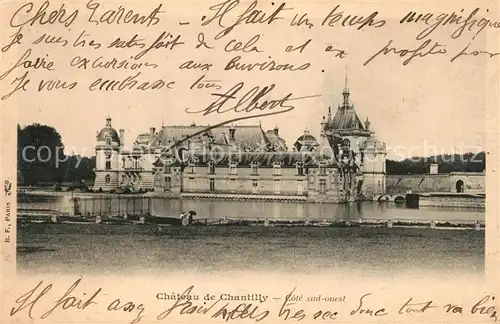 Chers Parents — Il fait un temps magnifique
Je suis très satisfait de cela et en profite pour
faire excursions aux Environs.
Je vous embrasse tous
Albert
B. F., PARIS
Château de Chantilly — Côté sud-ouest
Il fait donc tout va bien